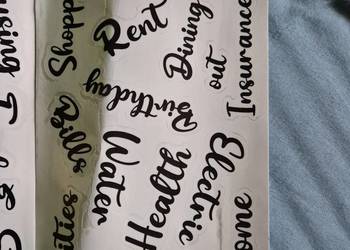 using
Shopp
Rent
Dining
out
Insurance
Birthday
Bills
Water
Health
Electric
ities
ome